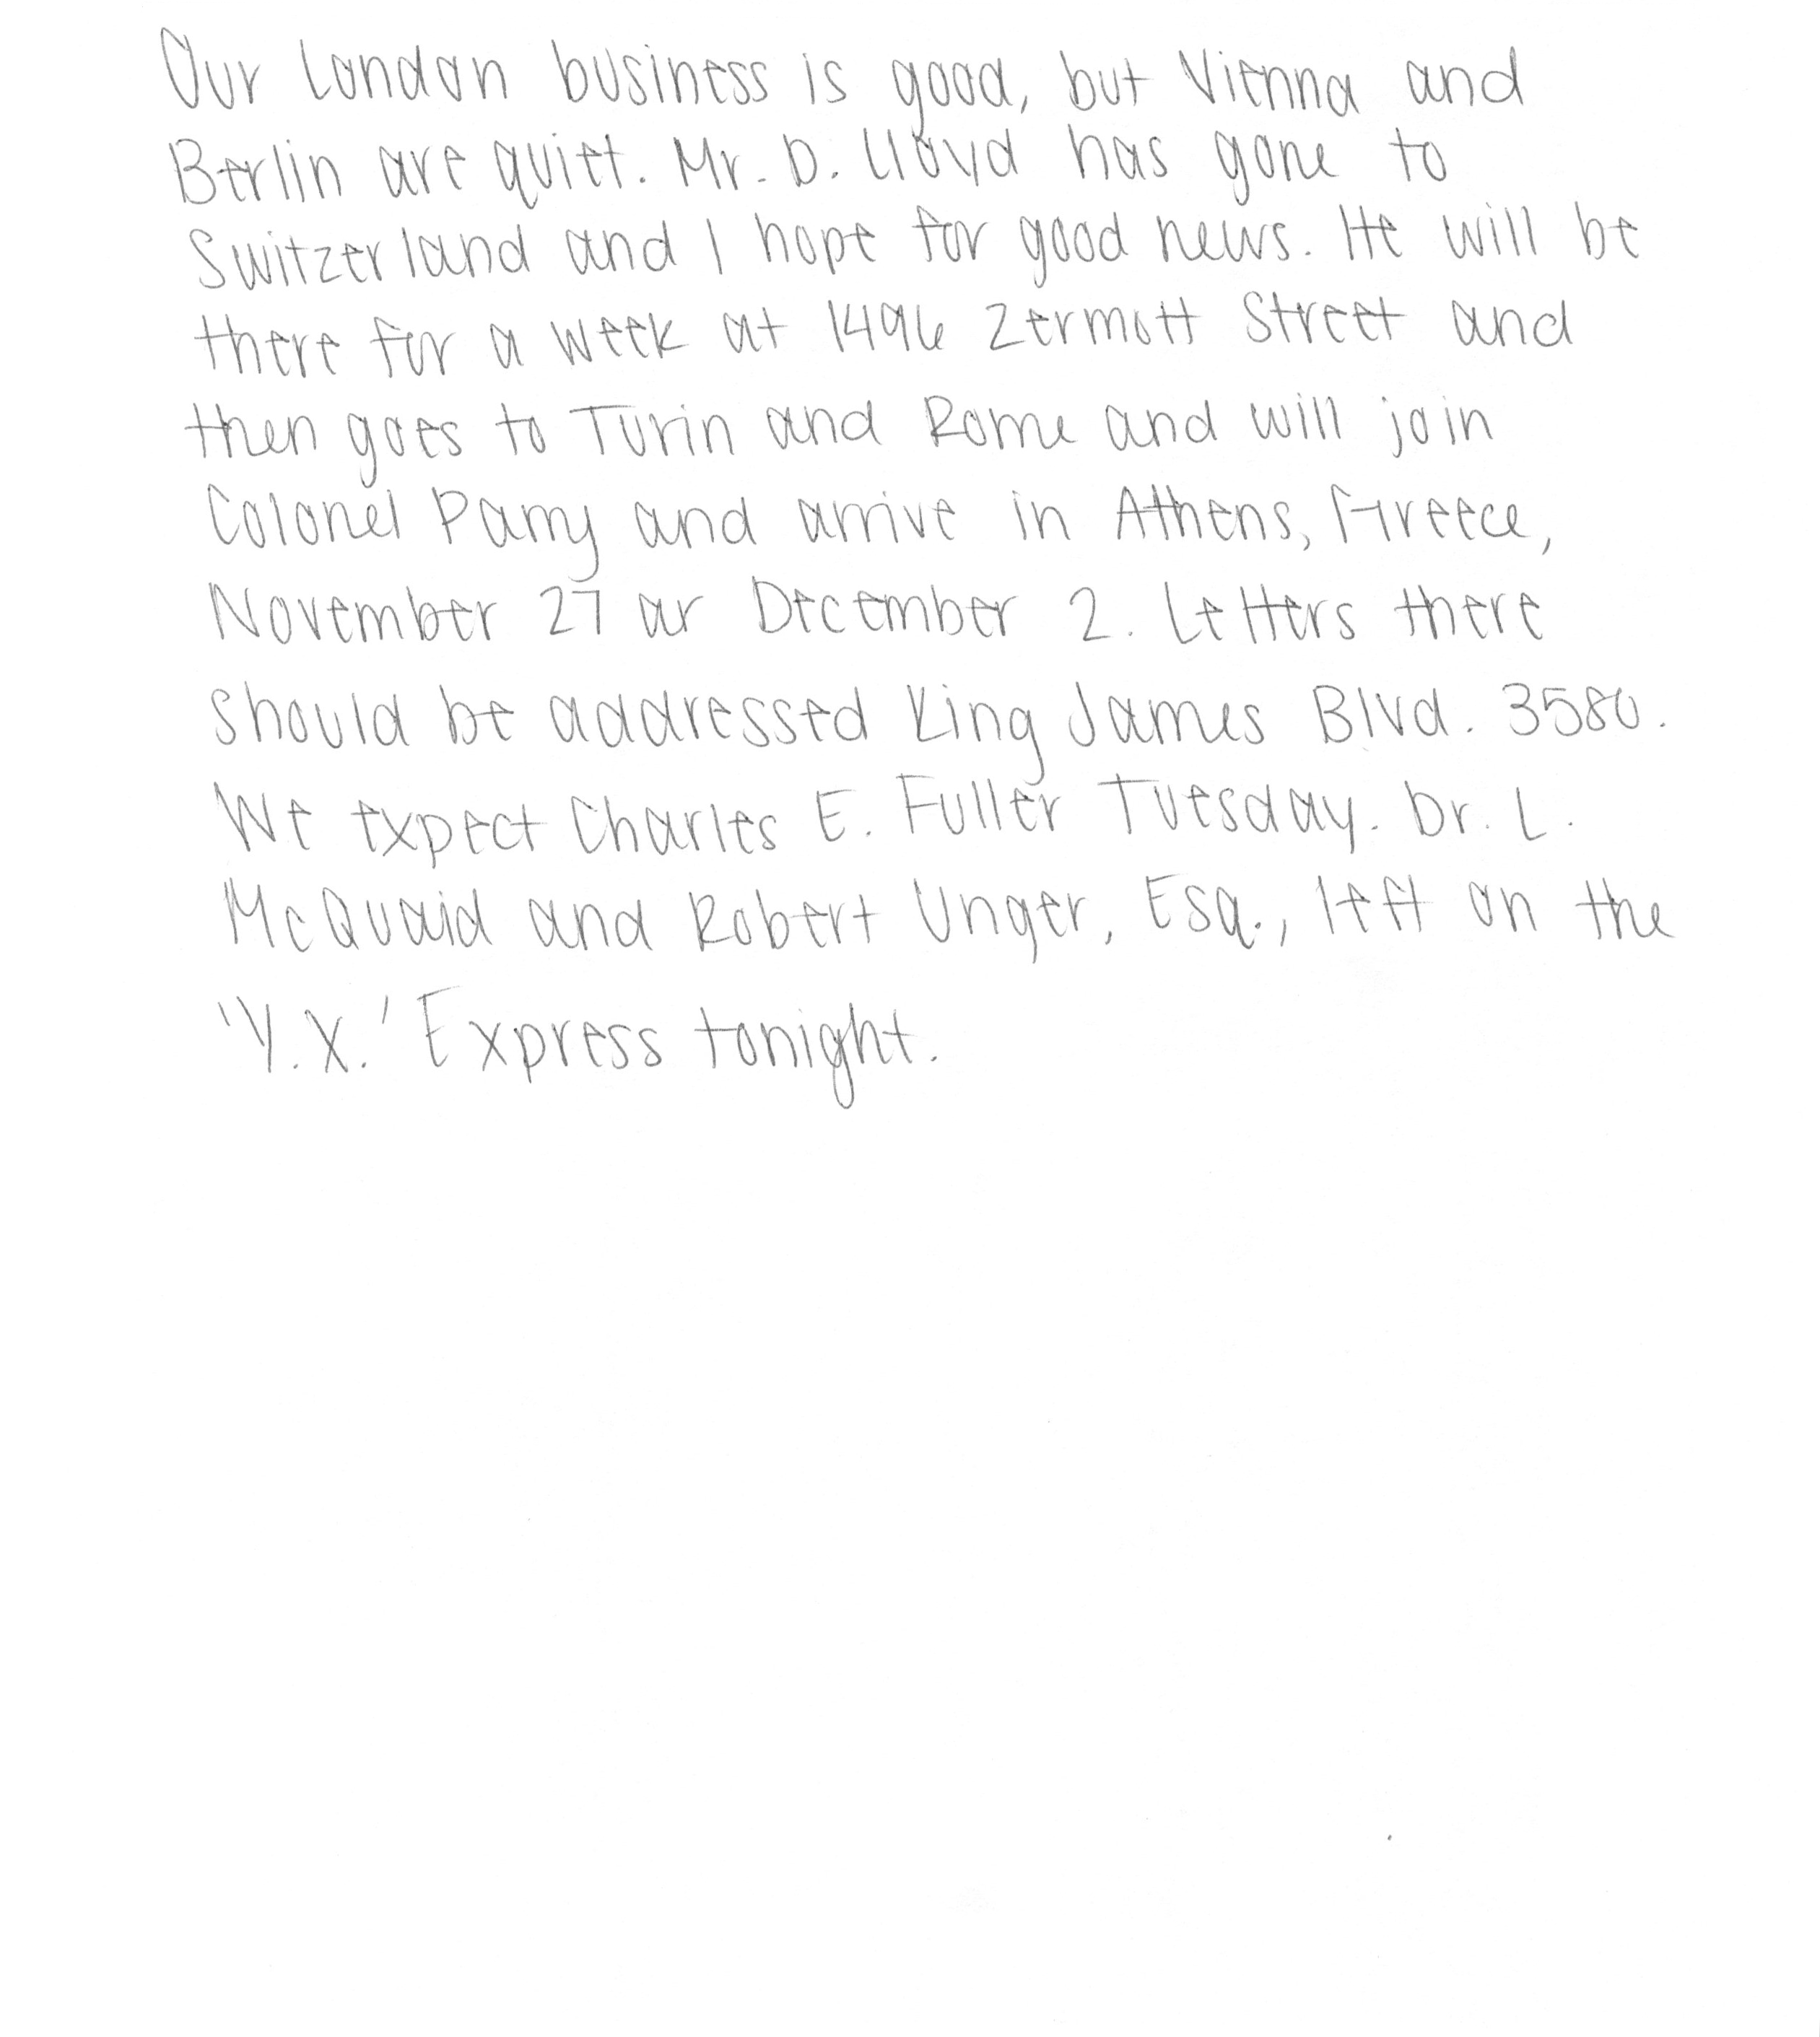 Our London business is good, but Vienna and
Berlin are quiet. Mr. D. Lloyd has gone to
Switzerland and I hope for good news. He will be
there for a week at 1496 Zermott Street and
then goes to Turin and Rome and will join
Colonel Parry and arrive in Athens, Greece,
November 27 or December 2. Letters there
should be addressed King James Blvd. 3580.
We expect Charles E. Fuller Tuesday. Dr. L.
McQuaid and Robert Unger, Esq., left on the
'Y.X.' Express tonight.